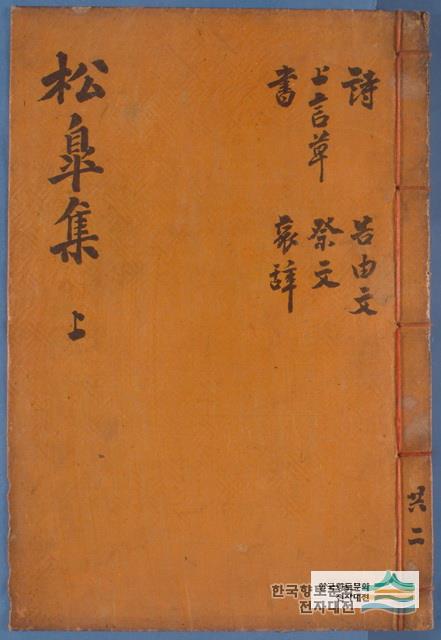 松皐集 上
詩 告由文
上言草 祭文
書 哀辭
共二
한국향토문화
전자대전
한국향토문화
전자대전